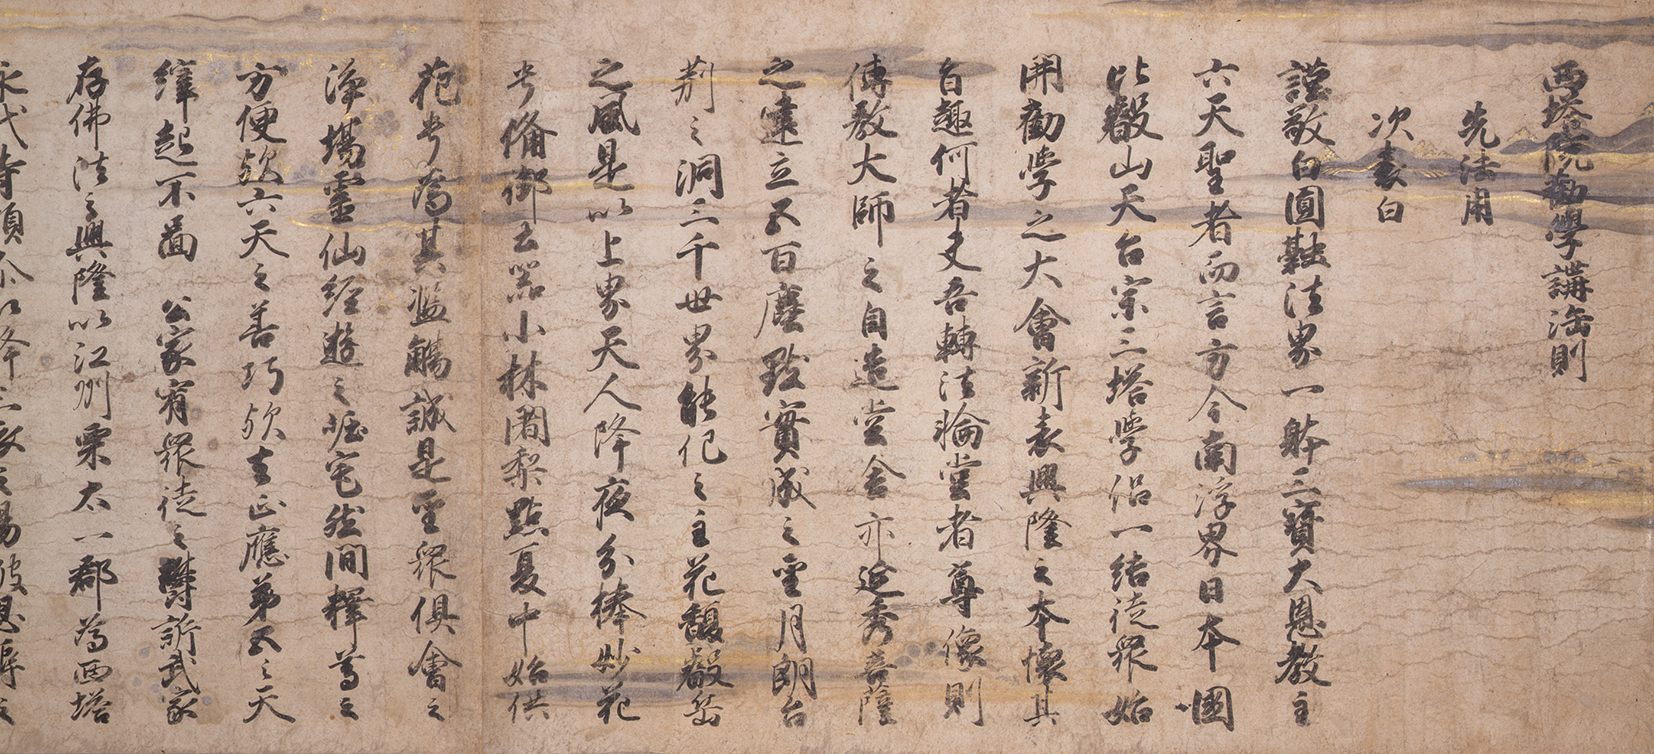 西塔院勸學講法則
先法用
次表白
謹敬白圓融法界一躰三寶大恩教主
六天聖者而言方今南浮界日本國
比叡山天台宗三塔學侶一結徒眾始
開勸學之大會新表興隆之本懷其
旨趣何者夫吾轉法輪堂者尊像則
傳教大師之自造堂舍亦延秀菩薩
之建立五百塵點實成之聖月朗台
荊之洞三千世界能化之主花馥叡岳
之風是以上界天人降夜分捧妙花
兮備御去黑小林闍梨點夏中始供
花兮為其濫觴誠是聖眾俱會之
淨場靈仙經遊之崛宅然間釋尊之
方便歟六天之善巧歟去正應第五之天
繹起不圖 公家宥眾徒之欝訴武家
存佛法之興隆以江州栗太一郡為西塔
永代寺領